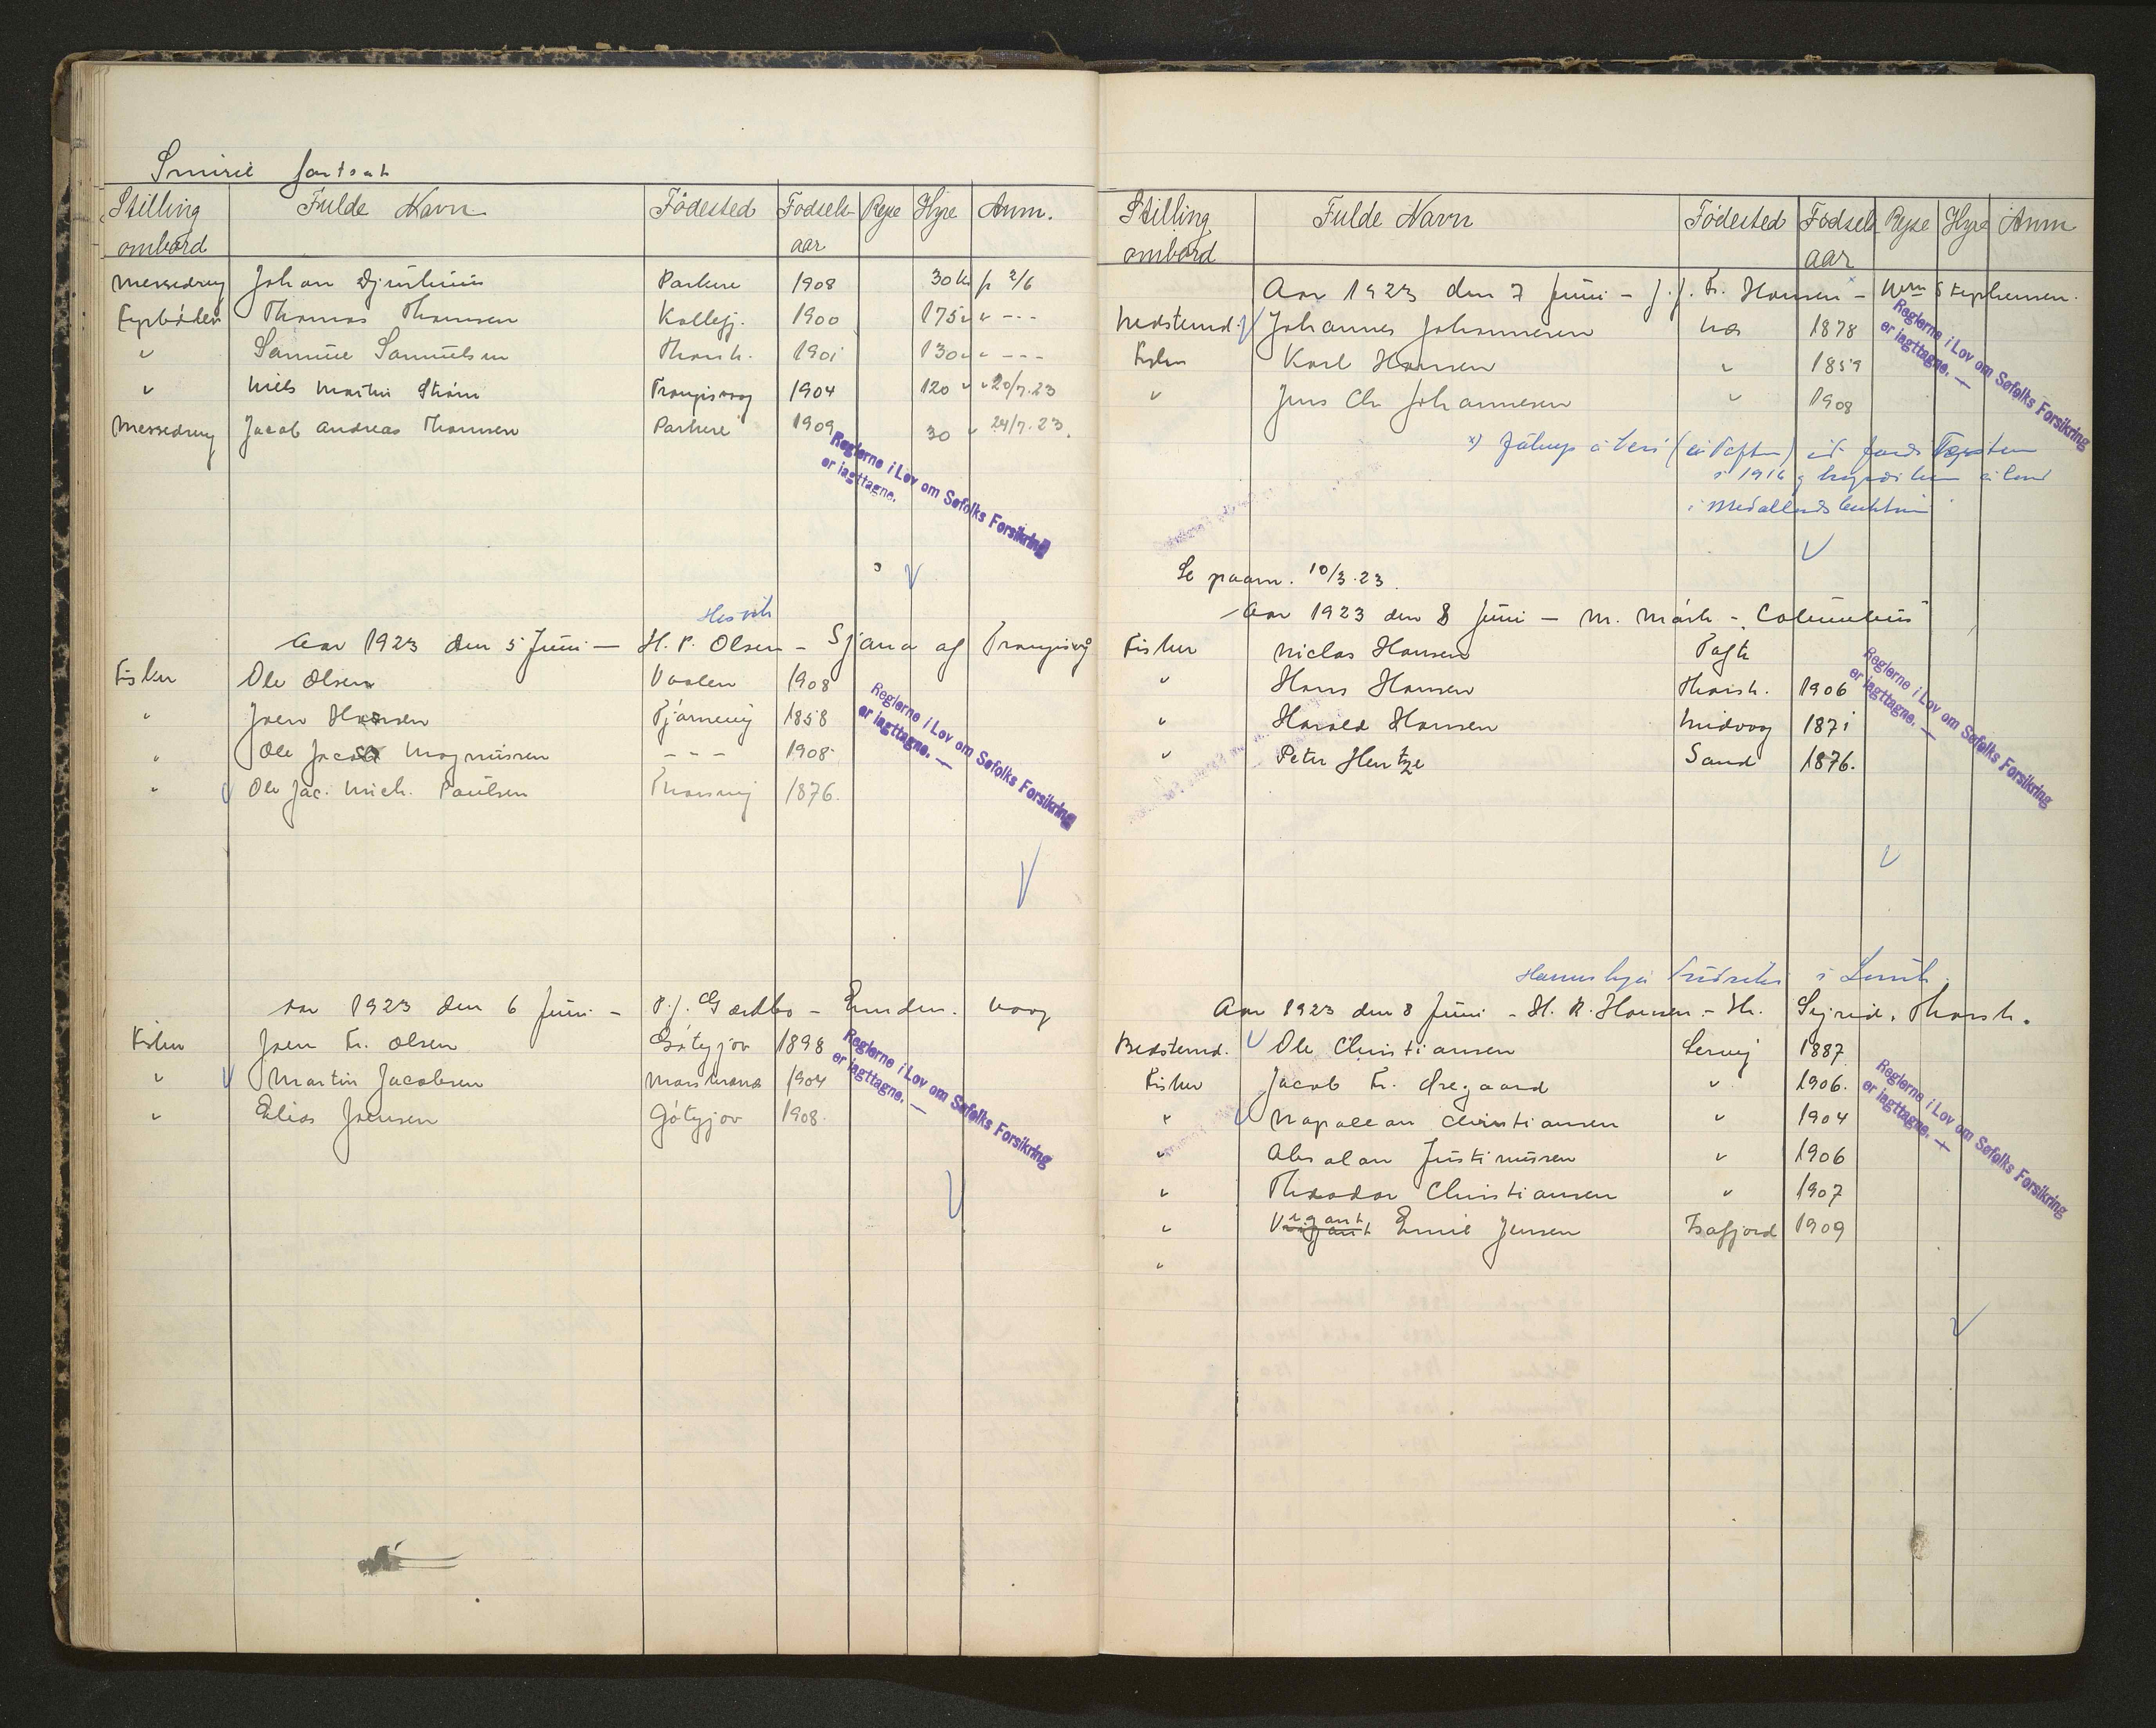 Smiril fortsat
Stilling ombord Fulde Navn Fødested Fødsels aar Rejse Hyre Anm.
Messedreng Johan Djurhuus Porkere 1908 30 kr fr 2/6
Fyrbøder Thomas Thomsen Kollefj. 1900 175 " " - - -
" Samuel Samuelsen Thorsh. 1901 130 " " - - -
" Niels Martin Strøm Trangisvaag 1904 120 " " 20/7.23
Messedreng Jacob Andreas Thomsen Porkere 1909 30 " 24/7.23.
Reglerne i Lov om Søfolks Forsikring
er iagttagne.
Aar 1923 den 5 Juni — H. P. Olsen - Sjana af Trangisvåg
Fisker Ole Olsen Vaalen 1908
" Joen Hansen Tjørnevig 1858
" Ole Jacob Magnussen - - - 1908
" Ole Jac. Mich. Paulsen 1876.
Reglerne i Lov om Søfolks Forsikring
er iagttagne. —
Aar 1923 den 6 Juni - P.J. - Emden. Vaag
Fisker Joen Fr. Olsen Götygjov 1898
" Martin Jacobsen 1904
" Elias Joensen Götygjov 1908.
Reglerne i Lov om Søfolks Forsikring
er iagttagne. —
Stilling ombord Fulde Navn Fødested Fødsels aar Rejse Hyre Anm
Aar 1923 den 7 Juni - J. J. Fr. Hansen - Wm Stephensen.
Bedstemd. Johannes Johannesen Næs 1878
Fisker Karl Hansen " 1859
" Jens Chr Johannesen " 1908
Reglerne i Lov om Søfolks Forsikring
er iagttagne. —
i 1916
Se paam. 10/3.23.
Aar 1923 den 8 Juni — M. Mörk - Columbus
Fisker Niclas Hansen Tofte
" Hans Hansen Thorsh. 1906
" Harald Hansen Midvaag 1871
" Peter Hentze Sand 1876.
Reglerne i Lov om Søfolks Forsikring
er iagttagne. —
Aar 1923 den 8 Juni - H. R. Hansen - Sigrid, Thorsh.
Bedstemd. Ole Christiansen Lervig 1887
Fisker Jacob Fr. Øregaard " 1906.
" Napolean Christiansen " 1904
" Absalon Justinussen " 1906
" Theodor Christiansen " 1907
" Vigant Emil Jensen Isafjord 1909
"
Reglerne i Lov om Søfolks Forsikring
er iagttagne. —